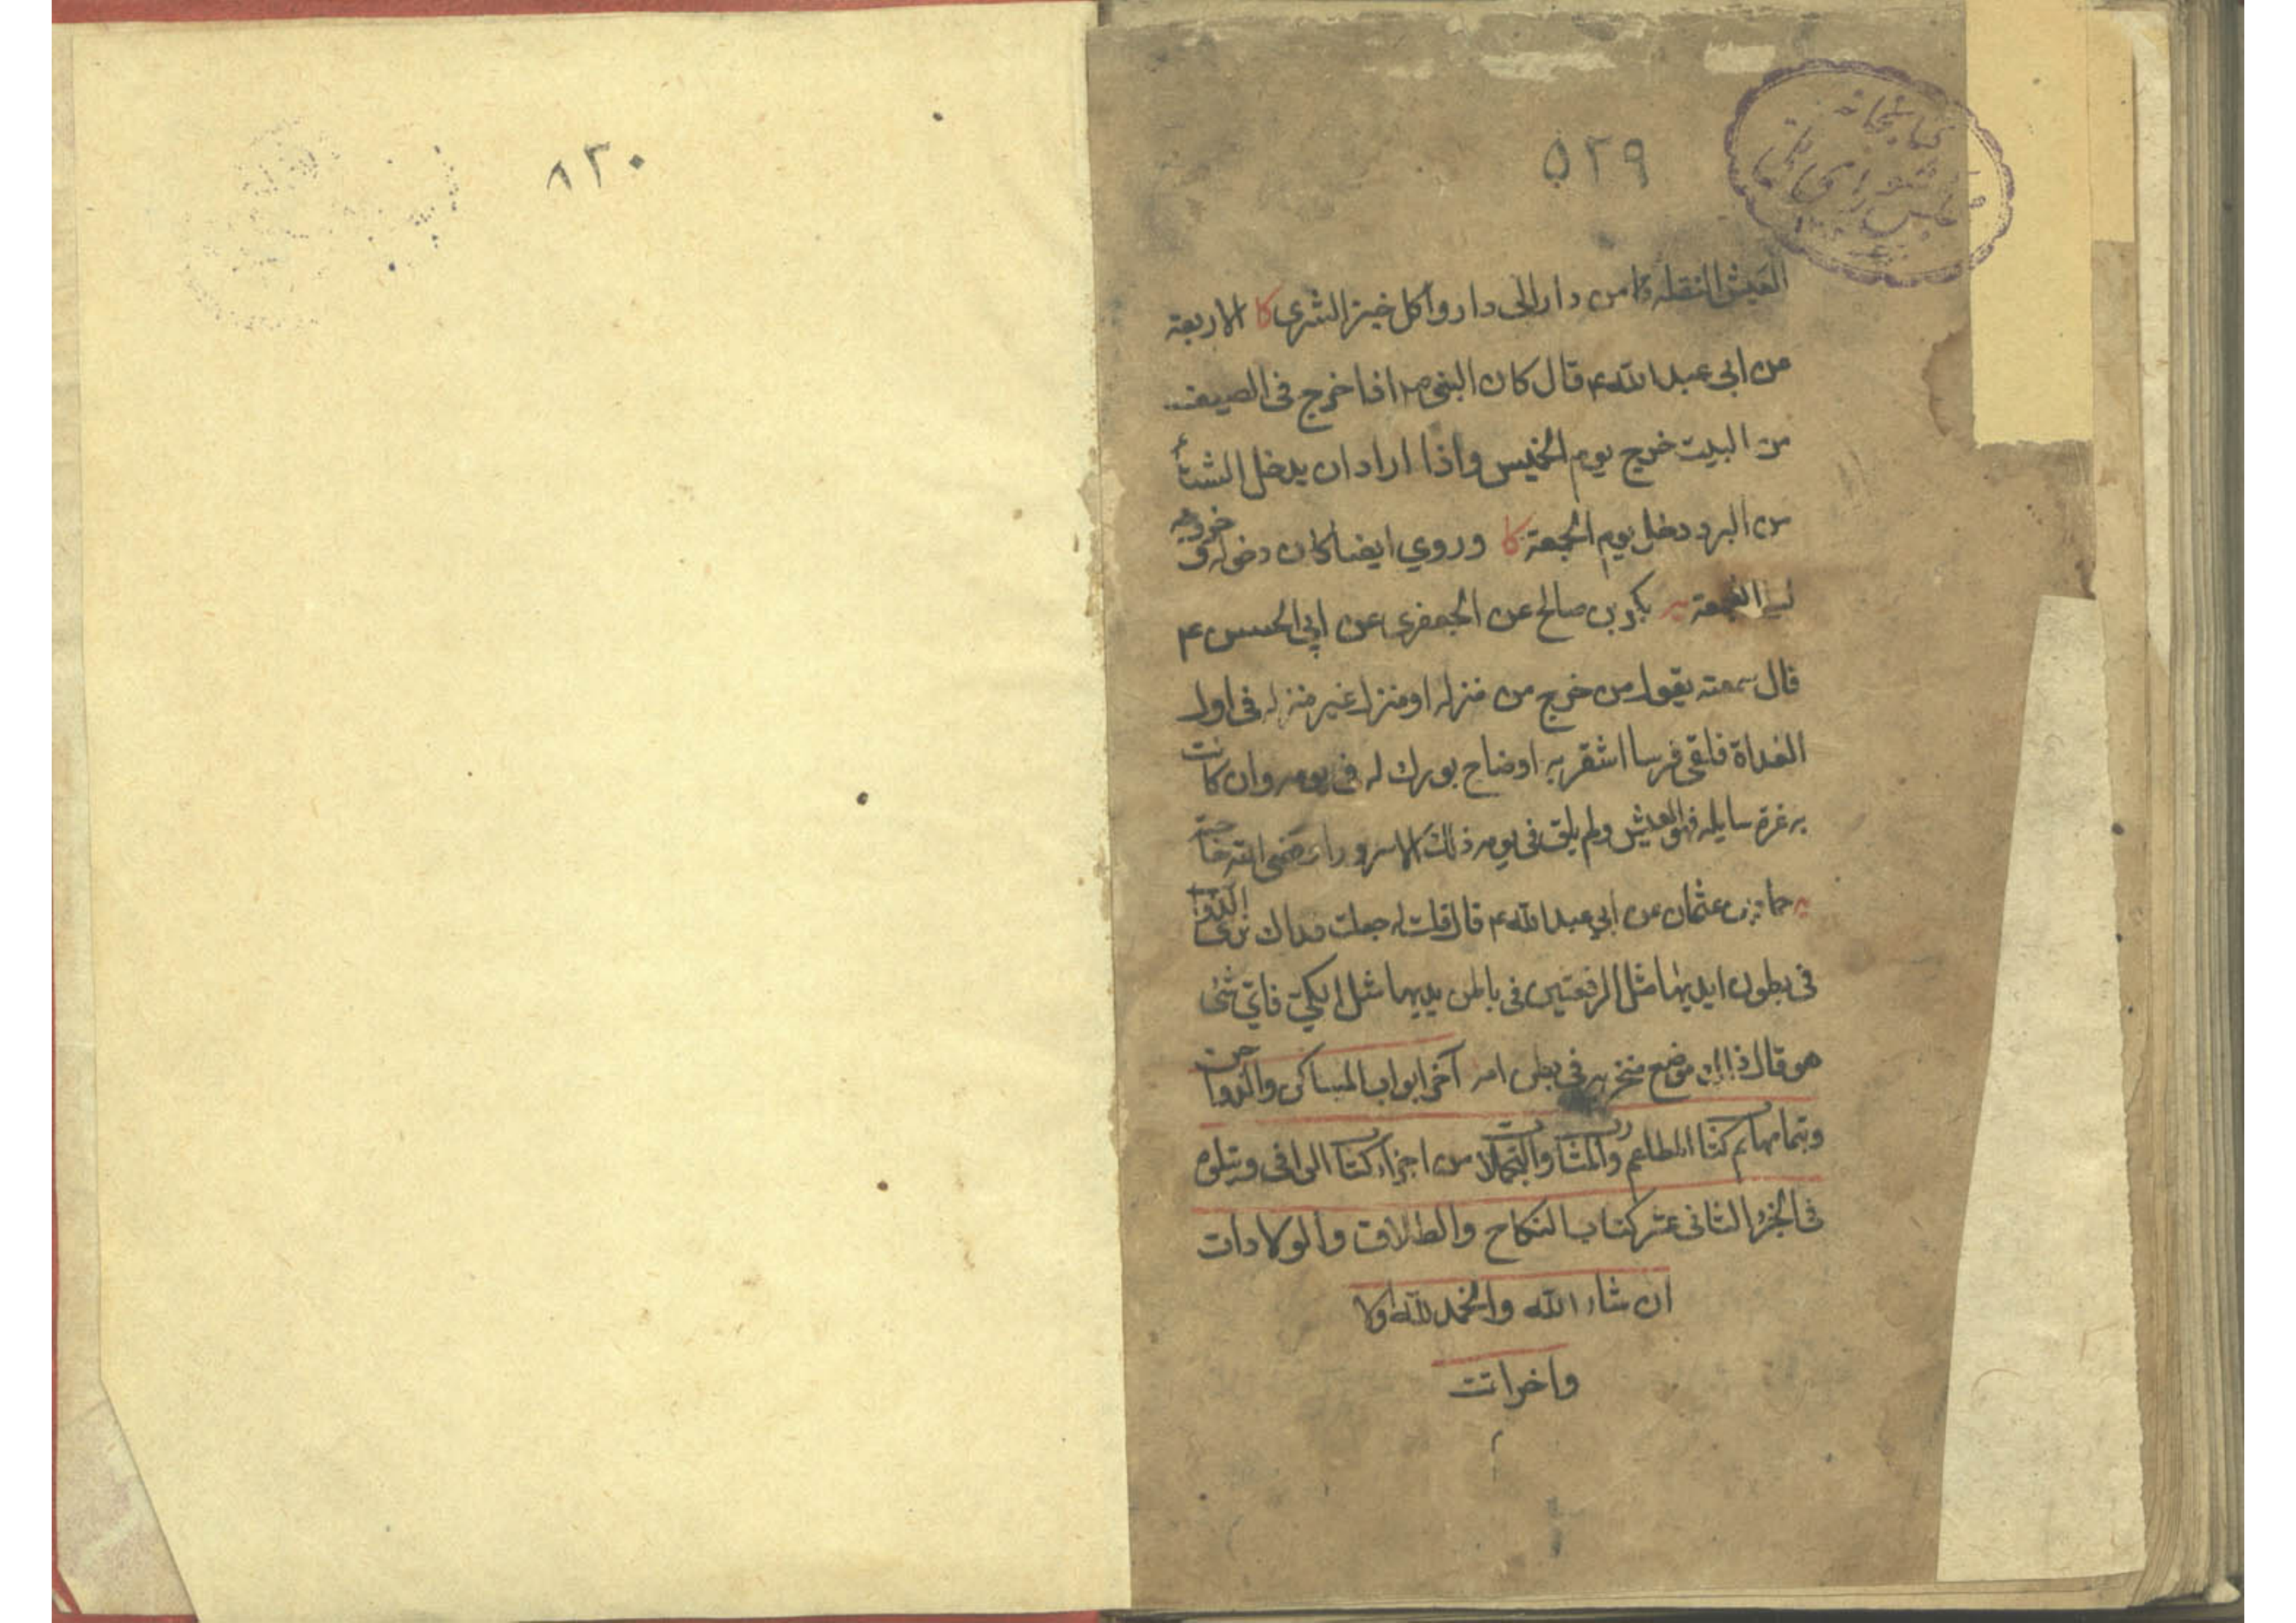 ۵۲۹
کتابخانه
مجلس شورای ملی
العیش النقله من دار الی دار واکل خبز الشری کا الاربعة
عن ابی عبد الله ع قال کان النبی ص اذا خرج فی الصیف
من البیت خرج یوم الخمیس واذا اراد ان یدخل الشتاء
من البرد دخل یوم الجمعة کا وروی ایضا کان دخوله و خروجه
لیلة الجمعة یه بکر بن صالح عن الجعفری عن ابی الحسن ع
قال سمعته یقول من خرج من منزله او منزل غیر منزله فی اول
الغداة فلقی فرسا اشقر به اوضاح بورك له فی یومه وان کانت
به غرة سایله فهو العیش ولم یلق فی یومه ذلك الا سرورا وقضی الله حاجته
یه حماد بن عثمان عن ابی عبد الله ع قال قلت له جعلت فداك نری الدواب
فی بطون ایدیها مثل الرقعتین فی باطن یدیها مثل الکی فای شئ
هو قال ذلك موضع منخریه فی بطن امه آخر ابواب المساکن والدواجن
وبتمامها تم کتاب المطاعم والمشارب والتجملات من اجزاء کتاب الوافی ویتلوه
فی الجزء الثانی عشر کتاب النکاح والطلاق والولادات
ان شاء الله والحمد لله اولا
واخرا تمت
م
۸۳۰